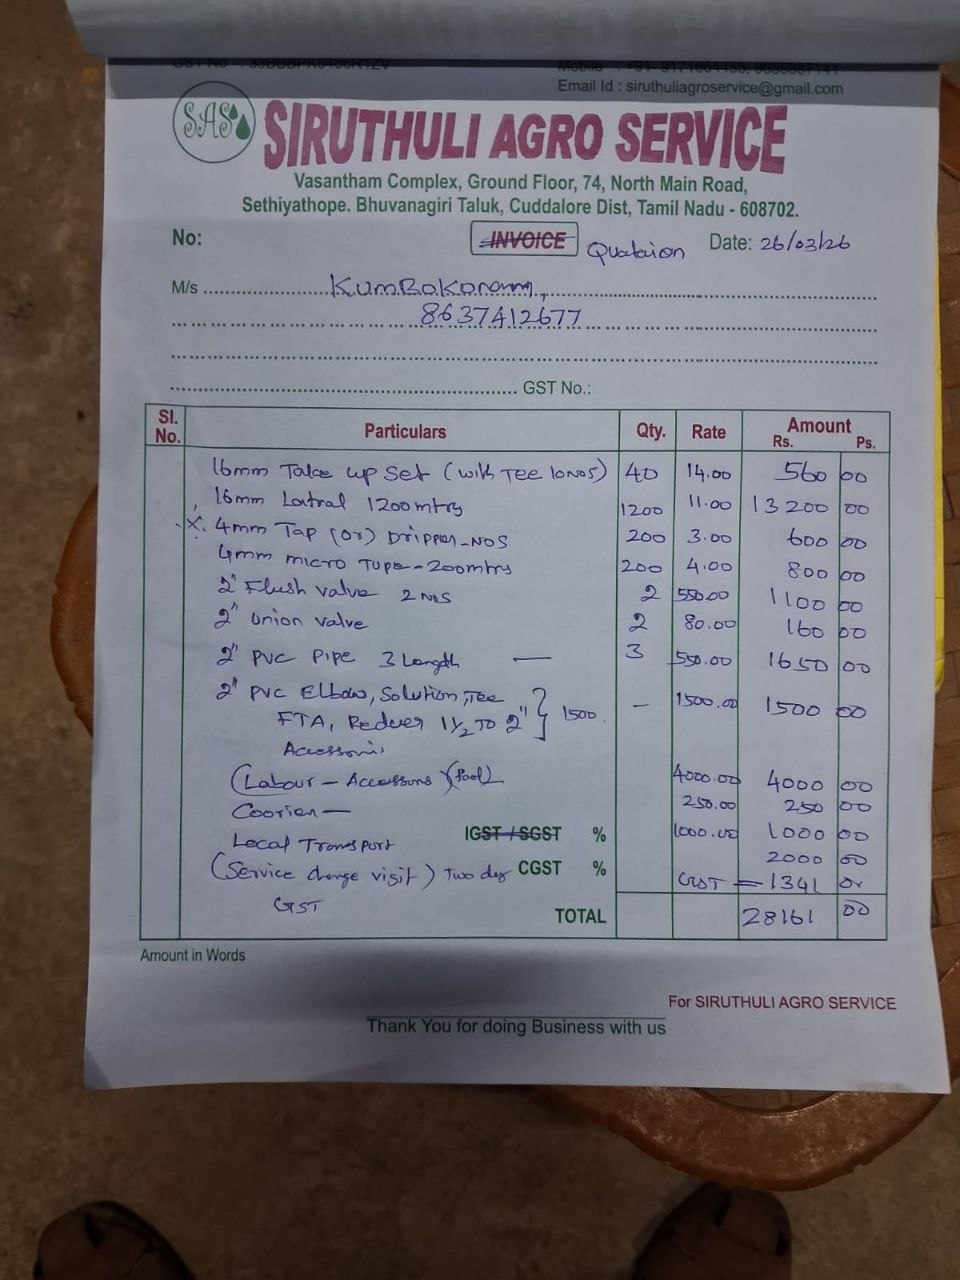 Email Id : siruthuliagroservice@gmail.com
SAS
SIRUTHULI AGRO SERVICE
Vasantham Complex, Ground Floor, 74, North Main Road,
Sethiyathope. Bhuvanagiri Taluk, Cuddalore Dist, Tamil Nadu - 608702.
No: INVOICE Quataion Date: 26/03/26
M/s KumBakonam,
8637412677
GST No.:
Sl. No. Particulars Qty. Rate Amount Rs. Ps.
16mm Take up set (with Tee 10NOS) 40 14.00 560 00
16mm Latral 1200mtrs 1200 11.00 13200 00
X. 4mm Tap (or) Dripper-NOS 200 3.00 600 00
4mm micro Tupe - 200mtrs 200 4.00 800 00
2" Flush valve 2 NOS 2 550.00 1100 00
2" union valve 2 80.00 160 00
2" PVC Pipe 3 Length — 3 550.00 1650 00
2" PVC Elbow, Solution, Tee
FTA, Reducer 1 1/2 TO 2" } 1500. - 1500.00 1500 00
Accessoris
(Labour - Accessons) 4000.00 4000 00
Coorien — 250.00 250 00
Local Transport IGST / SGST % 1000.00 1000 00
2000 00
(Service charge visit) Two day CGST % GST = 1341 00
GST
TOTAL 28161 00
Amount in Words
For SIRUTHULI AGRO SERVICE
Thank You for doing Business with us